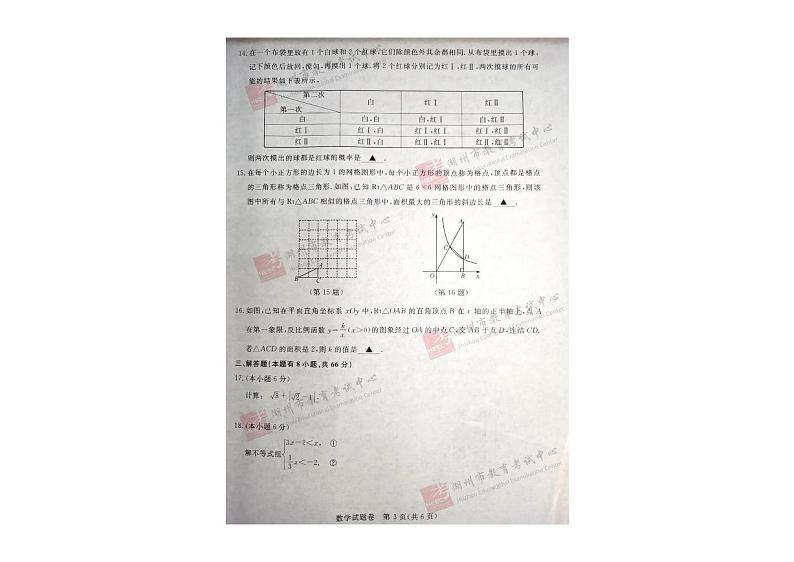 14.在一个布袋里放有1个白球和2个红球,它们除颜色外其余都相同.从布袋里摸出1个球,
记下颜色后放回,搅匀,再摸出1个球.将2个红球分别记为红Ⅰ,红Ⅱ,两次摸球的所有可
能的结果如下表所示,
第二次
第一次
白 红Ⅰ 红Ⅱ
白 白,白 白,红Ⅰ 白,红Ⅱ
红Ⅰ 红Ⅰ,白 红Ⅰ,红Ⅰ 红Ⅰ,红Ⅱ
红Ⅱ 红Ⅱ,白 红Ⅱ,红Ⅰ 红Ⅱ,红Ⅱ
则两次摸出的球都是红球的概率是 ▲ .
15.在每个小正方形的边长为1的网格图形中,每个小正方形的顶点称为格点,顶点都是格点
的三角形称为格点三角形.如图,已知Rt△ABC是6×6网格图形中的格点三角形,则该
图中所有与Rt△ABC相似的格点三角形中,面积最大的三角形的斜边长是 ▲ .
A
B C
y
A
C
D
O B x
(第15题) (第16题)
16.如图,已知在平面直角坐标系xOy中,Rt△OAB的直角顶点B在x轴的正半轴上,点A
在第一象限,反比例函数y=k/x(x>0)的图象经过OA的中点C,交AB于点D,连结CD.
若△ACD的面积是2,则k的值是 ▲ .
三、解答题(本题有8小题,共66分)
17.(本小题6分)
计算:√8+|√2-1|.
18.(本小题6分)
解不等式组{3x-2<x, ①
1/3x<-2. ②
数学试题卷 第3页(共6页)
湖州市教育考试中心
Huzhou Educational Examination Center